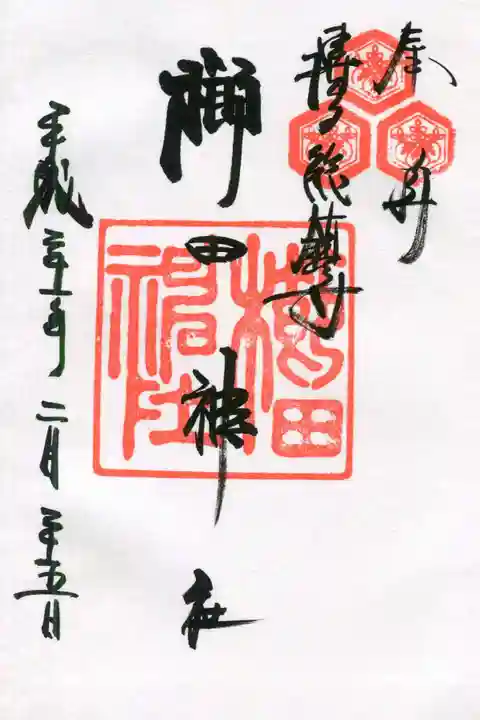 奉拝
博多総鎮守
櫛田神社
平成二十一年二月二十五日
櫛田神社